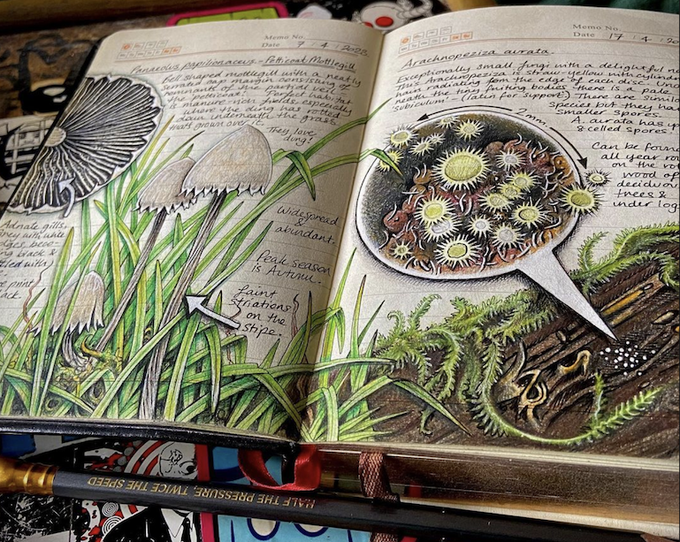 Memo No.
Date 9 / 4 / 2022
Panaeolus papilionaceus - Petticoat Mottlegill
Bell shaped mottlegill with a neatly
serrated margin consisting of
remnants of the partial veil -
the 'petticoat'. Perfect habitat
is manure-rich fields especially
where the dung has rotted
down underneath the grass
grown over it.
They love
dung!
Widespread
&
abundant.
Peak season
is Autumn.
faint
striations
on the
stipe.
Adnate gills,
edges beco-
ng black &
Memo No.
Date 17 / 4 / 20
Arachnopeziza aurata.
Exceptionally small fungi with a delightful
This Arachnopeziza is straw-yellow with
hairs radiating from the edge of each disc.
neath the tiny fruiting bodies there is a pale
'subiculum' - (latin for support) There are similar
Species but they ha
smaller spores.
A. aurata has
8 celled spores!
2mm.
Can be foun
all year ro
on the
wood of
deciduou
trees &
under log
HALF THE PRESSURE, TWICE THE SPEED